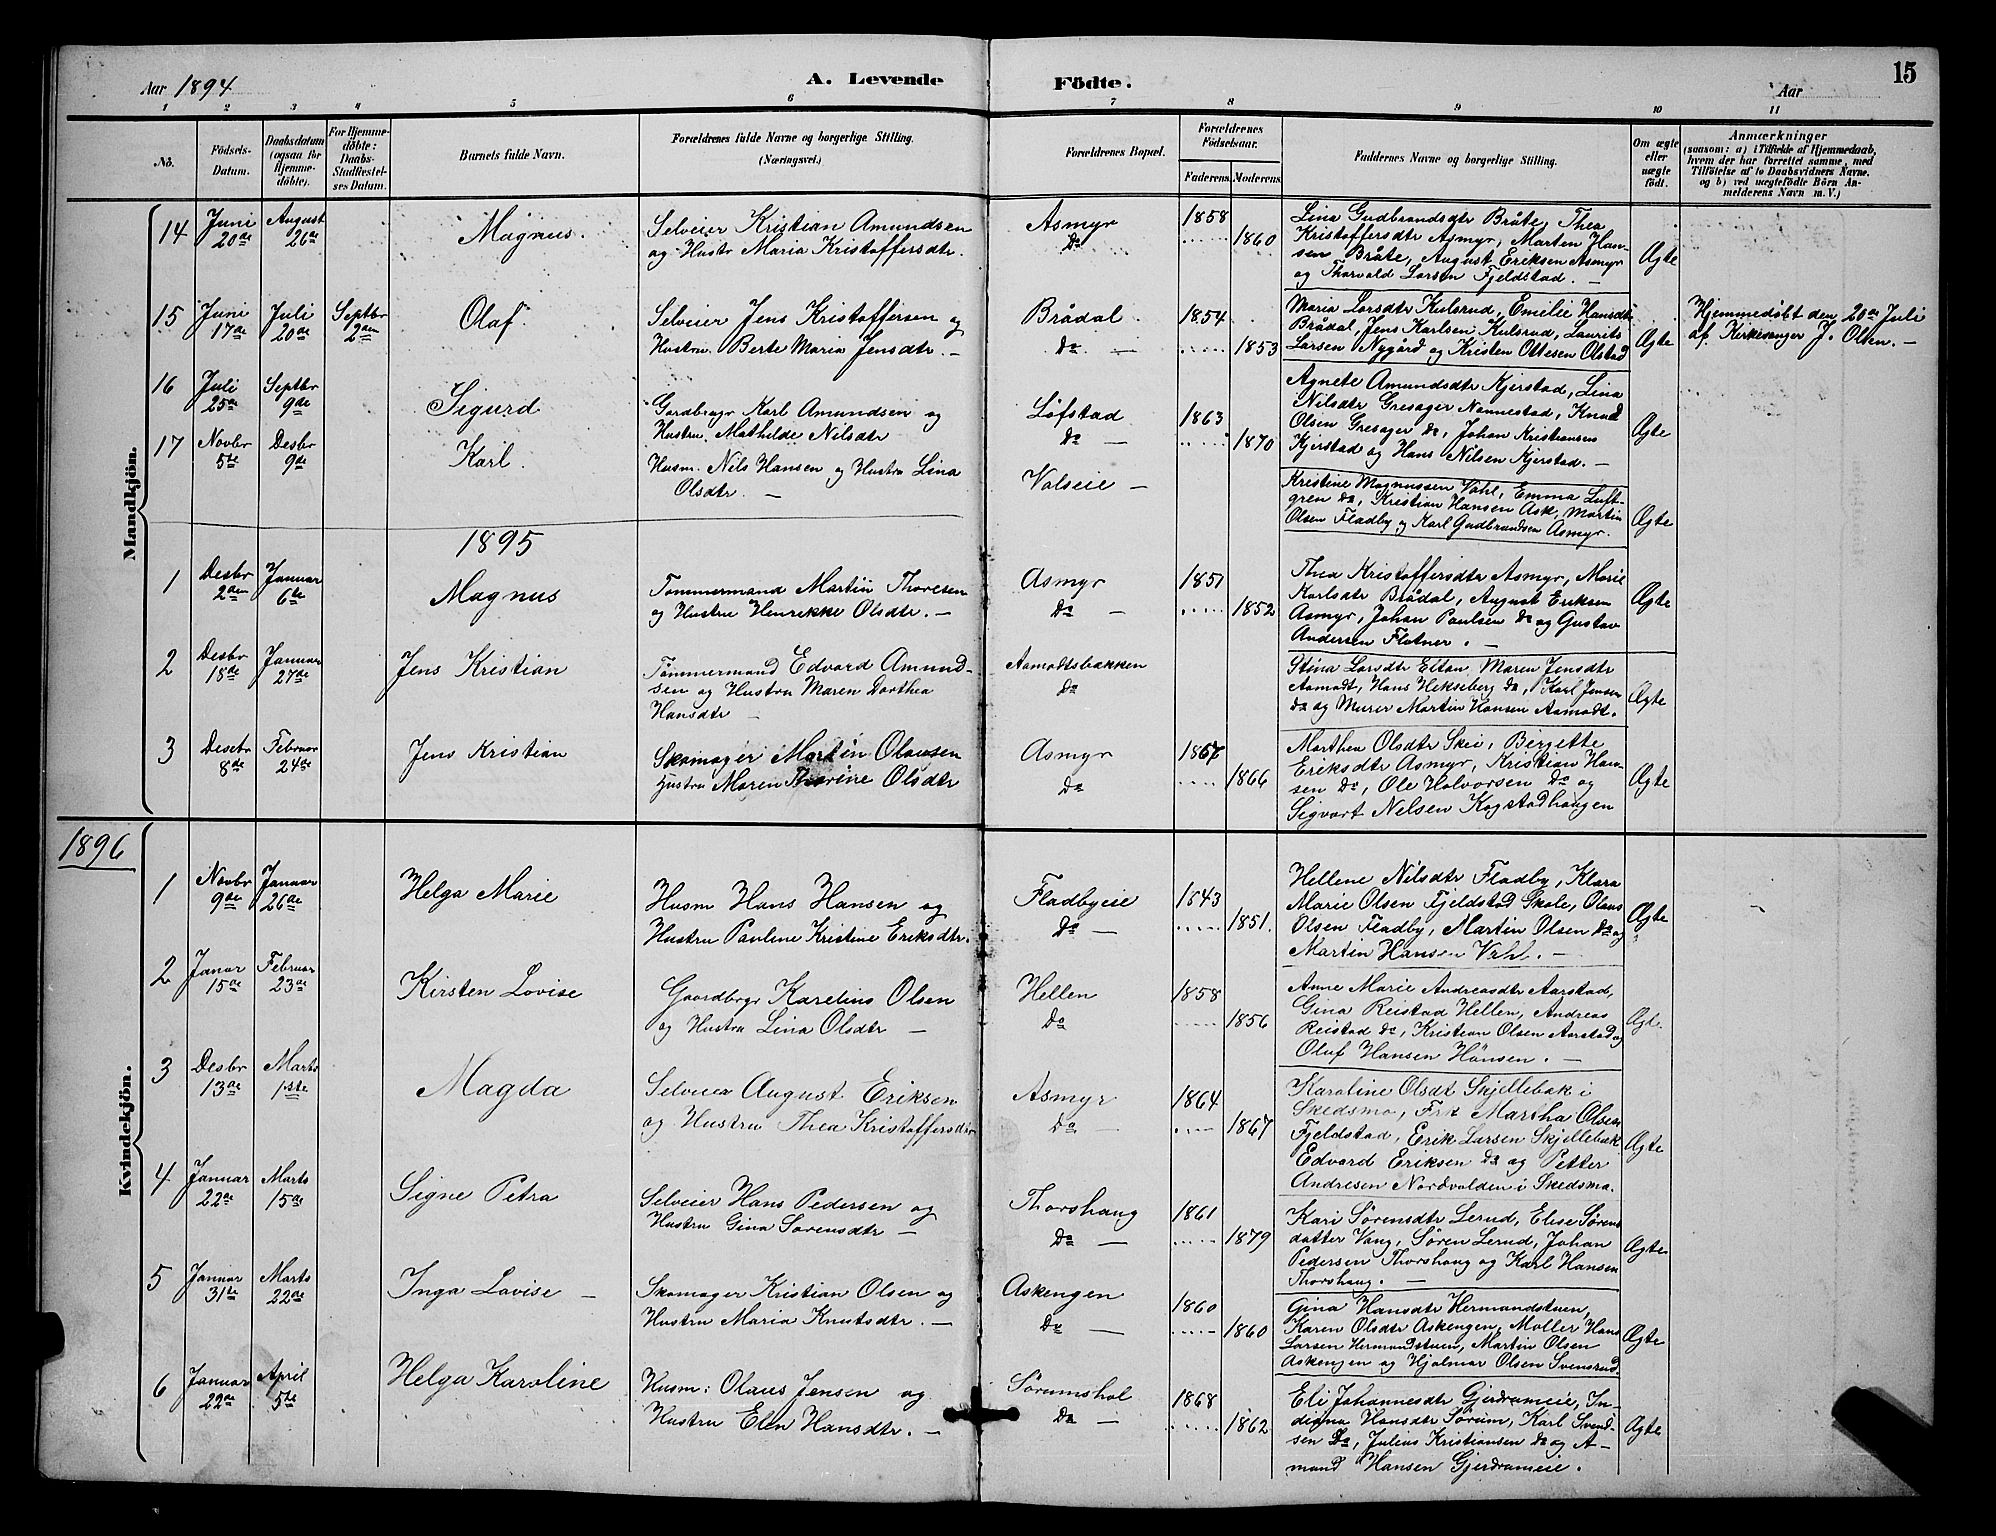 Aar 1894
A. Levende Födte.
15
Aar
1 2 3 4 5 6 7 8 9 10 11
No.
Födsels-Datum.
Daabsdatum (ogsaa for Hjemmedöbte).
For Hjemmedöbte: Daabs-Stadfæstelses Datum.
Barnets fulde Navn.
Forældrenes fulde Navne og borgerlige Stilling.
(Næringsvei.)
Forældrenes Bopæl.
Forældrenes Födselsaar.
Faderens. Moderens.
Faddernes Navne og borgerlige Stilling.
Om ægte eller uægte födt.
Anmærkninger
(saasom: a) i Tilfælde af Hjemmedaab, hvem der har forrettet samme, med Tilföielse af to Daabsvidners Navne. og b) ved uægtefödte Börn Anmelderens Navn m. V.)
Mandkjön.
14 Juni 20de August 26de Magnus.
Selveier Kristian Amundsen
og Hustr Maria Kristoffersdtr.
Asmyr Do 1858 1860
Lina Gudbrandsdtr Bråte, Thea
Kristoffersdtr Asmyr, Marten Han-
sen Bråte, August Eriksen Asmyr
og Thorvald Larsen Fjeldstad. –
Ægte
15 Juni 17de Juli 20de Septbr 2den Olaf.
Selveier Jens Kristoffersen og
Hustru Berte Maria Jensdtr. –
Brådal do. – 1854 1853
Maria Larsdtr Kulsrud, Emilie Hansdtr
Brådal, Jens Karlsen Kulsrud, Laurits
Larsen Nygård og Kristen Ottesen Olstad
Ægte
Hjemmedøbt den 20de Juli
af Kirkesanger J. Olsen. –
16 Juli 25de Septbr 9de Sigurd
Gardbrugr Karl Amundsen og
Hustru Mathilde Nilsdtr
Løfstad Do – 1863 1870
Agnete Amundsdtr Kjerstad, Lina
Nilsdtr Gresager Nannestad, Knud
Olsen Gresager do, Johan Kristiansen
Kjerstad og Hans Nilsen Kjerstad. –
Ægte
17 Novbr 5te Desbr 9de Karl.
Husm. Nils Hansen og Hustru Lina
Olsdtr. –
Valseie –
Kristine Magnussen Vahl, Emma Luft-
gren do, Kristian Hansen Ask, Martin
Olsen Fladby og Karl Gudbrandsen Asmyr.
Ægte
1895
1 Desbr 2den Januar 6te Magnus
Tømmermand Martin Thoresen
og Hustru Henrikke Olsdtr. –
Asmyr Do – 1851 1852
Thea Kristoffersdtr Asmyr, Marie
Karlsdtr Brådal, August Eriksen
Asmyr, Johan Paulsen Do og Gustav
Andersen Flatner. –
Ægte
2 Desbr 18de Januar 27de Jens Kristian
Tømmermand Edvard Amund-
sen og Hustru Maren Dorthea
Hansdtr –
Aamodtsbakken Do
Stina Larsdtr Eltan, Maren Jensdtr
Aamodt, Hans Hekseberg do, Karl Jensen
do og Murer Martin Hansen Aamodt.
Ægte
3 Desebr 8de Februar 24de Jens Kristian
Skomager Martin Olausen
Hustru Maren Thorine Olsdtr
Asmyr Do 1867 1866
Marthea Olsdtr Skei, Birgette
Eriksdtr Asmyr, Kristian Han-
sen do, Ole Halvorsen do og
Sigvart Nelsen Kogstadhaugen
Ægte
1896
Kvindekjön.
1 Novbr 9de Januar 26de Helga Marie
Husm Hans Hansen og
Hustru Pauline Kristine Eriksdtr.
Fladbyeie Do – 1843 1851.
Hellene Nilsdtr Fladby, Klara
Marie Olsen Fjeldstad Skole, Olaus
Olsen Fladby, Martin Olsen Do og
Martin Hansen Vahl. –
Ægte
2 Januar 15de Februar 23de Kirsten Lovise
Gaardbrgr Karelius Olsen
og Hustru Lina Olsdtr –
Hellen Do 1858 1856
Anne Marie Andreasdtr Aarstad,
Gina Reistad Hellen, Andreas
Reistad do, Kristian Olsen Aarstad og
Oluf Hansen Hönsen. –
Ægt.
3 Desbr 13de Marts 1ste Magda
Selveier August Eriksen
og Hustru Thea Kristoffersdtr
Asmyr Do – 1864 1867
Karoline Olsdt Skjellebæk i
Skedsmo, Frk Martha Olsen
Fjeldstad, Erik Larsen Skjellebæk
Edvard Eriksen do og Petter
Andresen Nordvalden i Skedsmo.
Ægte
4 Januar 22de Marts 15de Signe Petra
Selveier Hans Pedersen og
Hustru Gina Sørensdtr –
Thorshaug Do – 1861 1879
Kari Sørensdtr Lerud, Elise Sørens
datter Vang, Søren Lerud, Johan
Pedersen Thorshaug og Karl Hansen
Thorshaug. –
Ægte
5 Januar 31te Marts 22de Inga Lovise –
Skomager Kristian Olsen og
Hustru Maria Knutsdtr. –
Askengen Do – 1860 1860
Gina Hansdtr Hermandstuen,
Karen Olsdtr Askengen, Møller Hans
Larsen Hermandstuen, Martin Olsen
Askengen og Hjalmar Olsen Svensrud.
Ægte
6 Januar 22de April 5te Helga Karoline
Husm: Olaus Jensen og
Hustru Elen Hansdtr. –
Sørumshol Do – 1868 1862
Eli Johannesdtr Gjerdrumeie, In-
diana Hansdtr Sørum, Karl Svend-
sen Do, Julius Kristiansen do og A-
mund Hansen Gjerdrumeie.
Ægte